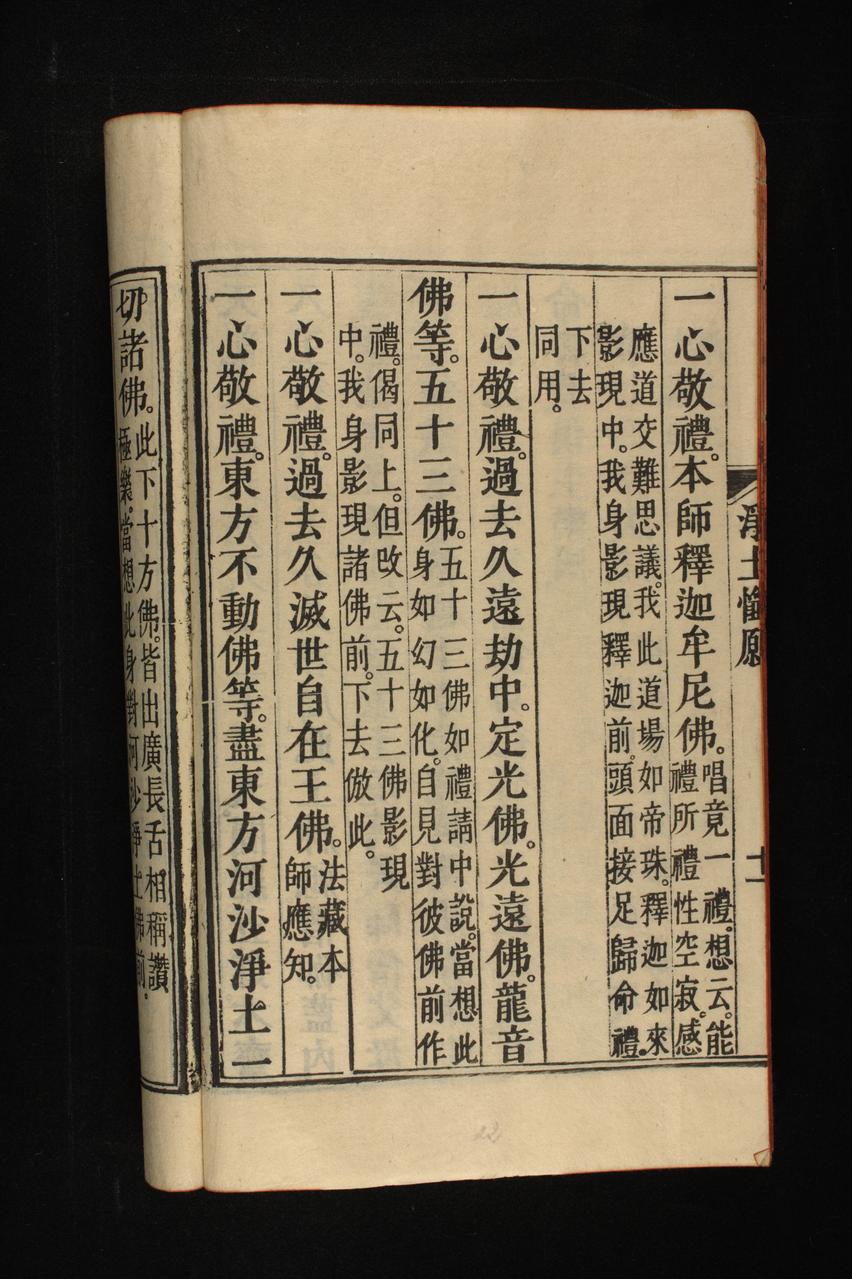 淨土懺願
十一
一心敬禮。本師釋迦牟尼佛。唱竟一禮。想云。能禮所禮性空寂。感
應道交難思議。我此道場如帝珠。釋迦如來
影現中。我身影現釋迦前。頭面接足歸命禮。
下去
同用。
一心敬禮。過去久遠劫中。定光佛。光遠佛。龍音
佛等。五十三佛。五十三佛如禮請中說。當想此身如幻如化。自見對彼佛前作
禮。偈同上。但改云。五十三佛影現
中。我身影現諸佛前。下去倣此。
一心敬禮。過去久滅世自在王佛。法藏本師應知。
一心敬禮。東方不動佛等。盡東方河沙淨土一
切諸佛。此下十方佛。皆出廣長舌相稱讚極樂。當想此身對河沙淨土佛前。